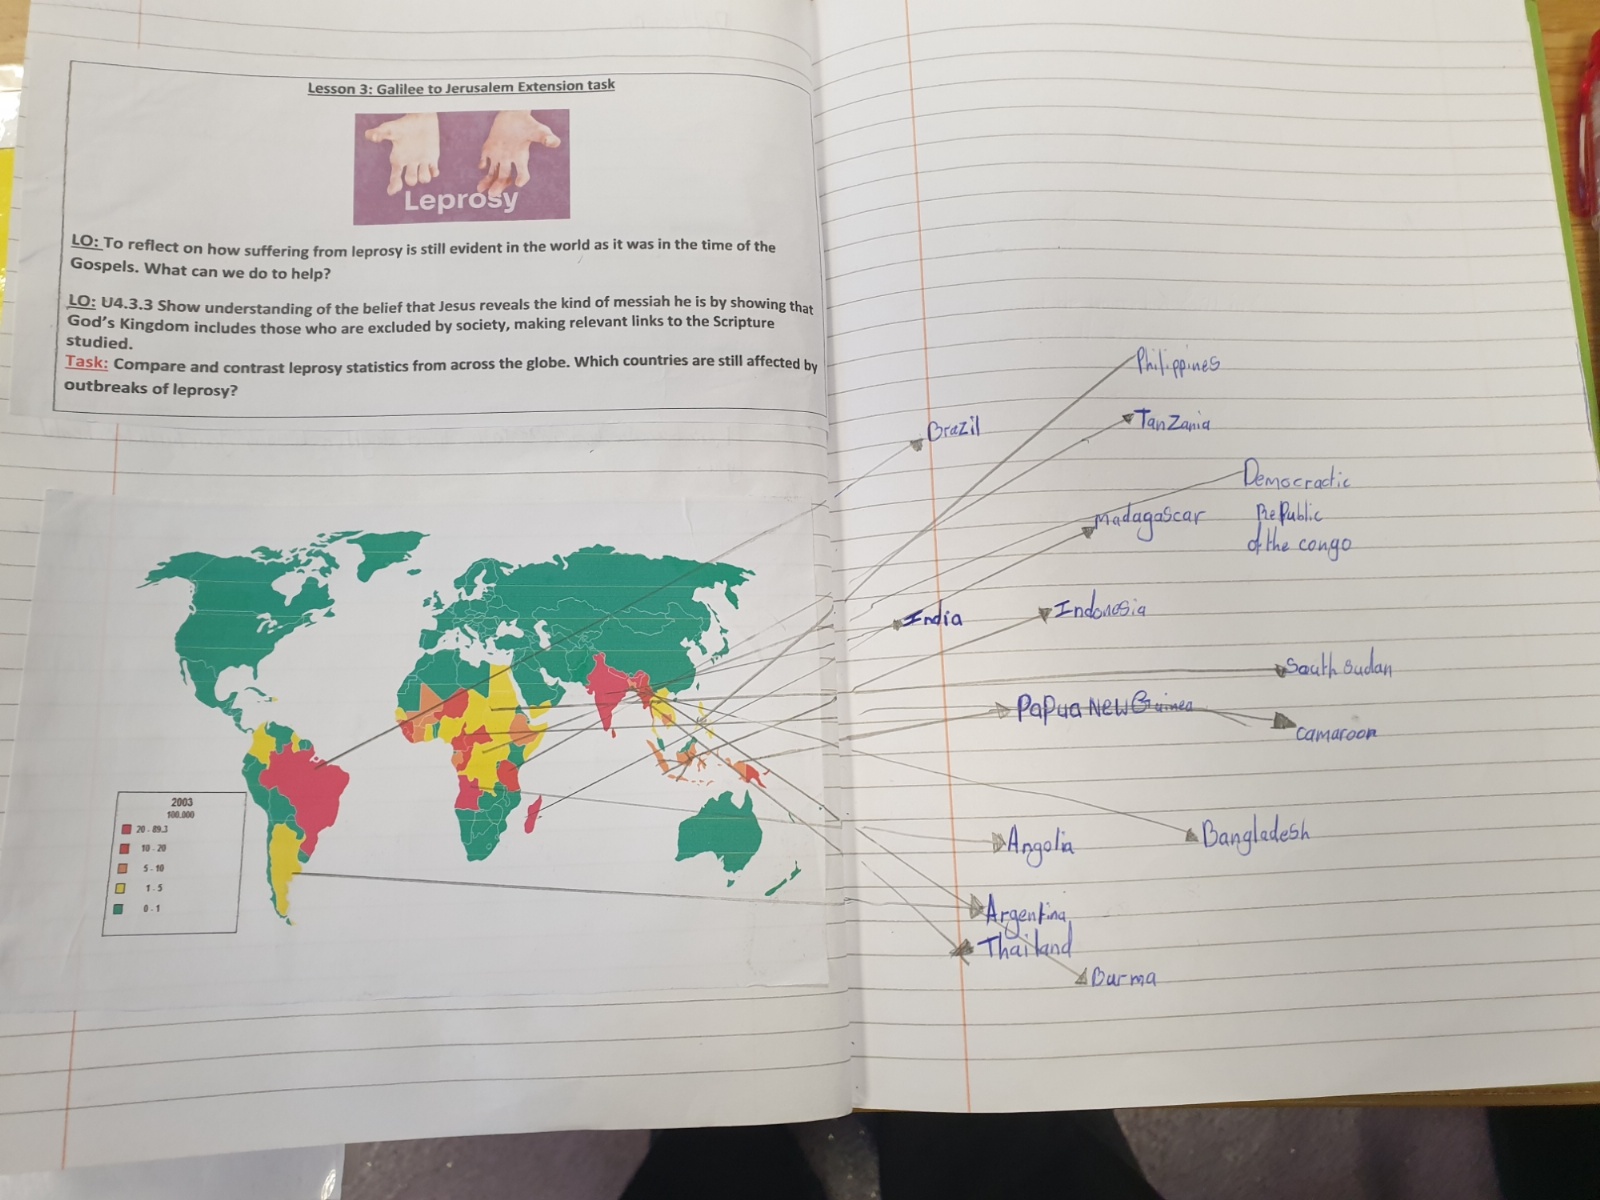 Lesson 3: Galilee to Jerusalem Extension task
Leprosy
LO: To reflect on how suffering from leprosy is still evident in the world as it was in the time of the
Gospels. What can we do to help?
LO: U4.3.3 Show understanding of the belief that Jesus reveals the kind of messiah he is by showing that
God's Kingdom includes those who are excluded by society, making relevant links to the Scripture
studied.
Task: Compare and contrast leprosy statistics from across the globe. Which countries are still affected by
outbreaks of leprosy?
2003
100.000
20 - 89.3
10 - 20
5 - 10
1 - 5
0 - 1
Philippines
Brazil
TanZania
Democractic
RePublic
of the congo
Madagascar
India
Indonesia
South Sudan
PaPua New Guinea
Camaroon
Angolia
Bangladesh
Argentina
Thailand
Burma